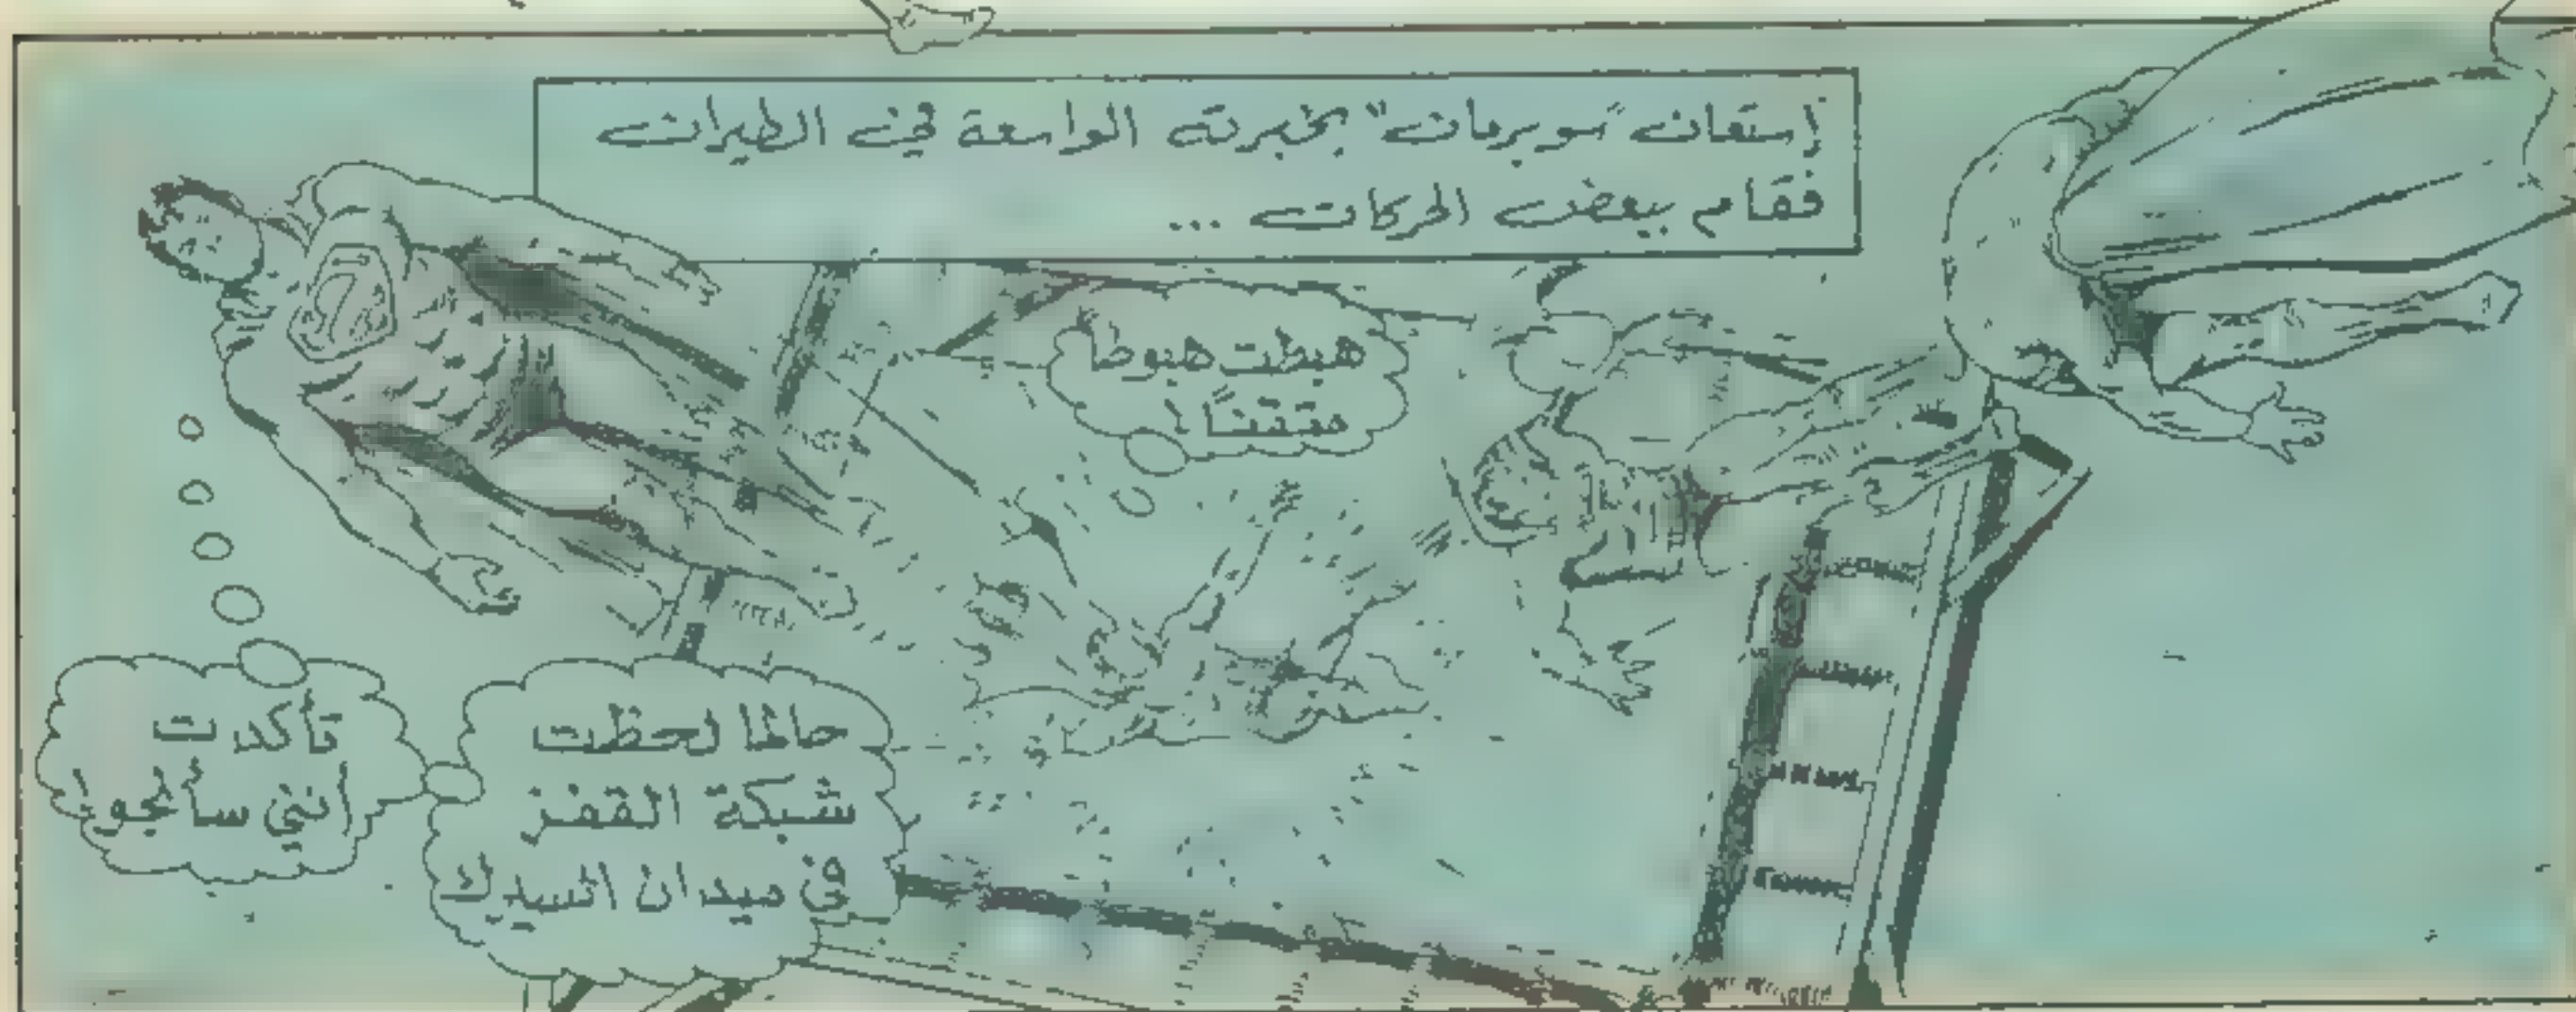 إستعان "سوبرمان" بخبرته الواسعة في الطيران
فقام ببعض الحركات ...
هبطت هبوطاً
متقناً!
حالما لحظت
شبكة القفز
في ميدان السيرك
تأكدت
أنني سأنجو!